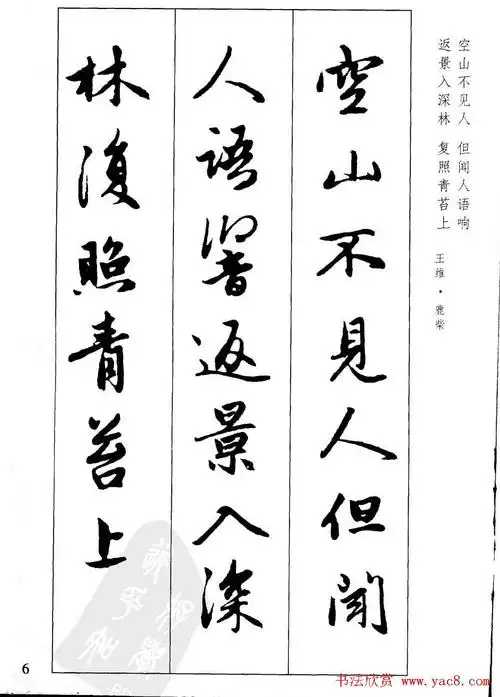 空山不见人 但闻人语响
返景入深林 复照青苔上
王维·鹿柴
空山不見人但聞
人語響返景入深
林復照青苔上
6
书法欣赏
www.yac8.com